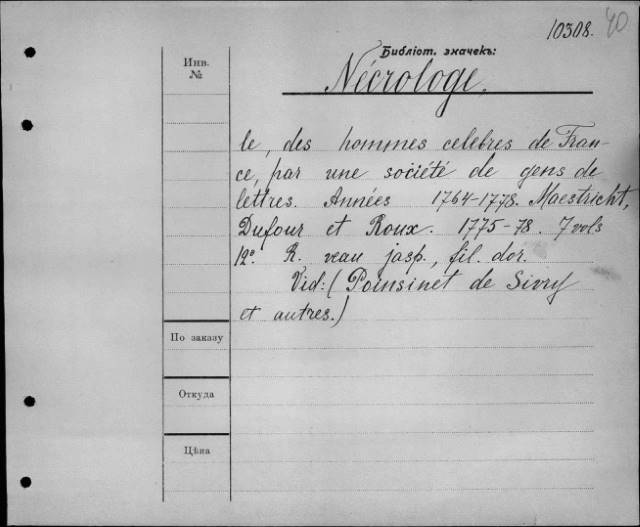 10308. 40
Библіот. значекъ:
Инв.
№
Nécrologe,
le, des hommes celebres de Fran-
ce, par une société de gens de
lettres. Années 1764-1778. Maestricht,
Dufour et Roux. 1775-78. 7 vols
12º R. veau jasp., fil. d'or.
Vid: (Poinsinet de Sivry
et autres.)
По заказу
Откуда
Цѣна